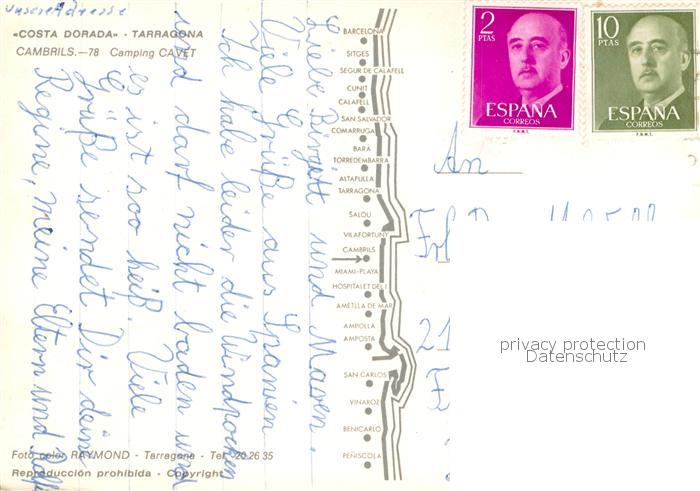 unsere Adresse
«COSTA DORADA» - TARRAGONA
CAMBRILS.—78 Camping CAVET
Liebe Birgitt und Maren.
Viele Grüße aus Spanien
Ich habe leider die Windpocken
und darf nicht baden und
es ist soo heiß. Viele
Grüße sendet Dir deine
Regine, meine Eltern und Ralf
Foto color RAYMOND - Tarragona - Tel. 20 26 35
Reproducción prohibida - Copyright
BARCELONA
SITGES
SEGUR DE CALAFELL
CUNIT
CALAFELL
SAN SALVADOR
COMARRUGA
BARÁ
TORREDEMBARRA
ALTAFULLA
TARRAGONA
SALOU
VILAFORTUNY
CAMBRILS
MIAMI-PLAYA
HOSPITALET DEL I.
AMETLLA DE MAR
AMPOLLA
AMPOSTA
SAN CARLOS
VINAROZ
BENICARLO
PEÑISCOLA
2
PTAS
ESPAÑA
CORREOS
F.N.M.T.
10
PTAS
ESPAÑA
CORREOS
F.N.M.T.
An
21
privacy protection
Datenschutz